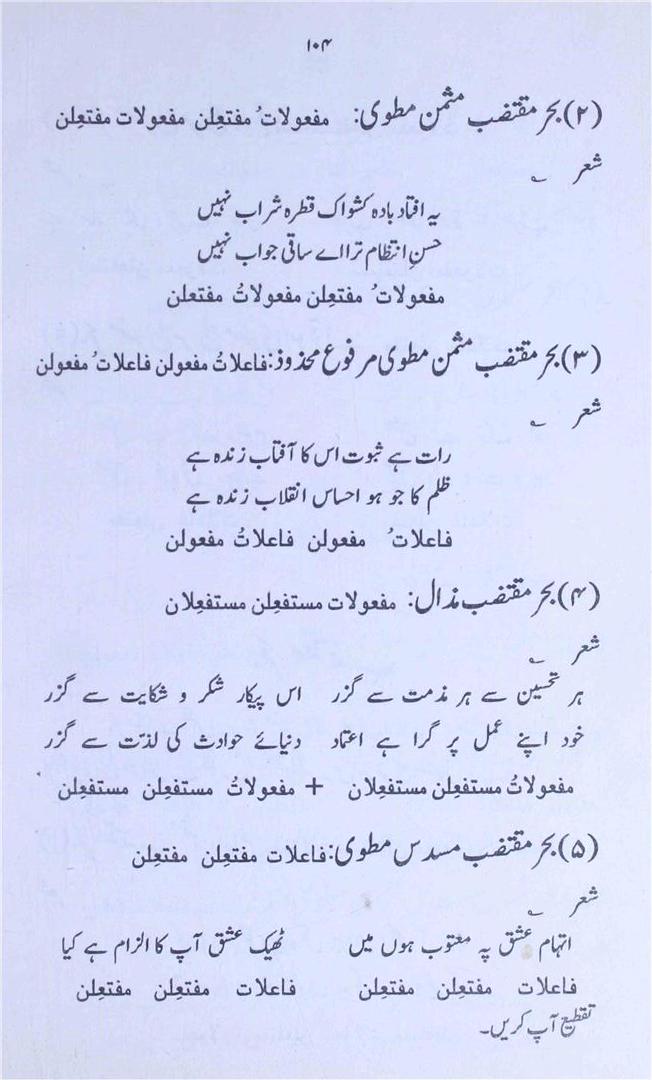 ۱۰۴
(۲) بحر مقتضب مثمن مطوی: مفعولاتُ مفتعِلن مفعولات مفتعِلن
شعر ؎
یہ افتاد بادہ کشو اک قطرہ شراب نہیں
حسنِ انتظام ترا اے ساقی جواب نہیں
مفعولاتُ مفتعِلن مفعولاتُ مفتعلن
(۳) بحر مقتضب مثمن مطوی مرفوع محذوذ: فاعلاتُ مفعولن فاعلاتُ مفعولن
شعر ؎
رات ہے ثبوت اس کا آفتاب زندہ ہے
ظلم کا جو ہو احساس انقلاب زندہ ہے
فاعلاتُ مفعولن فاعلاتُ مفعولن
(۴) بحر مقتضب مذال: مفعولات مستفعِلن مستفعِلان
شعر ؎
ہر تحسین سے ہر مذمت سے گزر اس پیکار شکر و شکایت سے گزر
خود اپنے عمل پر گرا ہے اعتماد دنیائے حوادث کی لذت سے گزر
مفعولاتُ مستفعِلن مستفعِلان + مفعولاتُ مستفعِلن مستفعِلن
(۵) بحر مقتضب مسدس مطوی: فاعلات مفتعِلن مفتعِلن
شعر ؎
اتہام عشق پہ معتوب ہوں میں ٹھیک عشق آپ کا الزام ہے کیا
فاعلات مفتعِلن مفتعِلن فاعلات مفتعِلن مفتعِلن
تقطیع آپ کریں۔